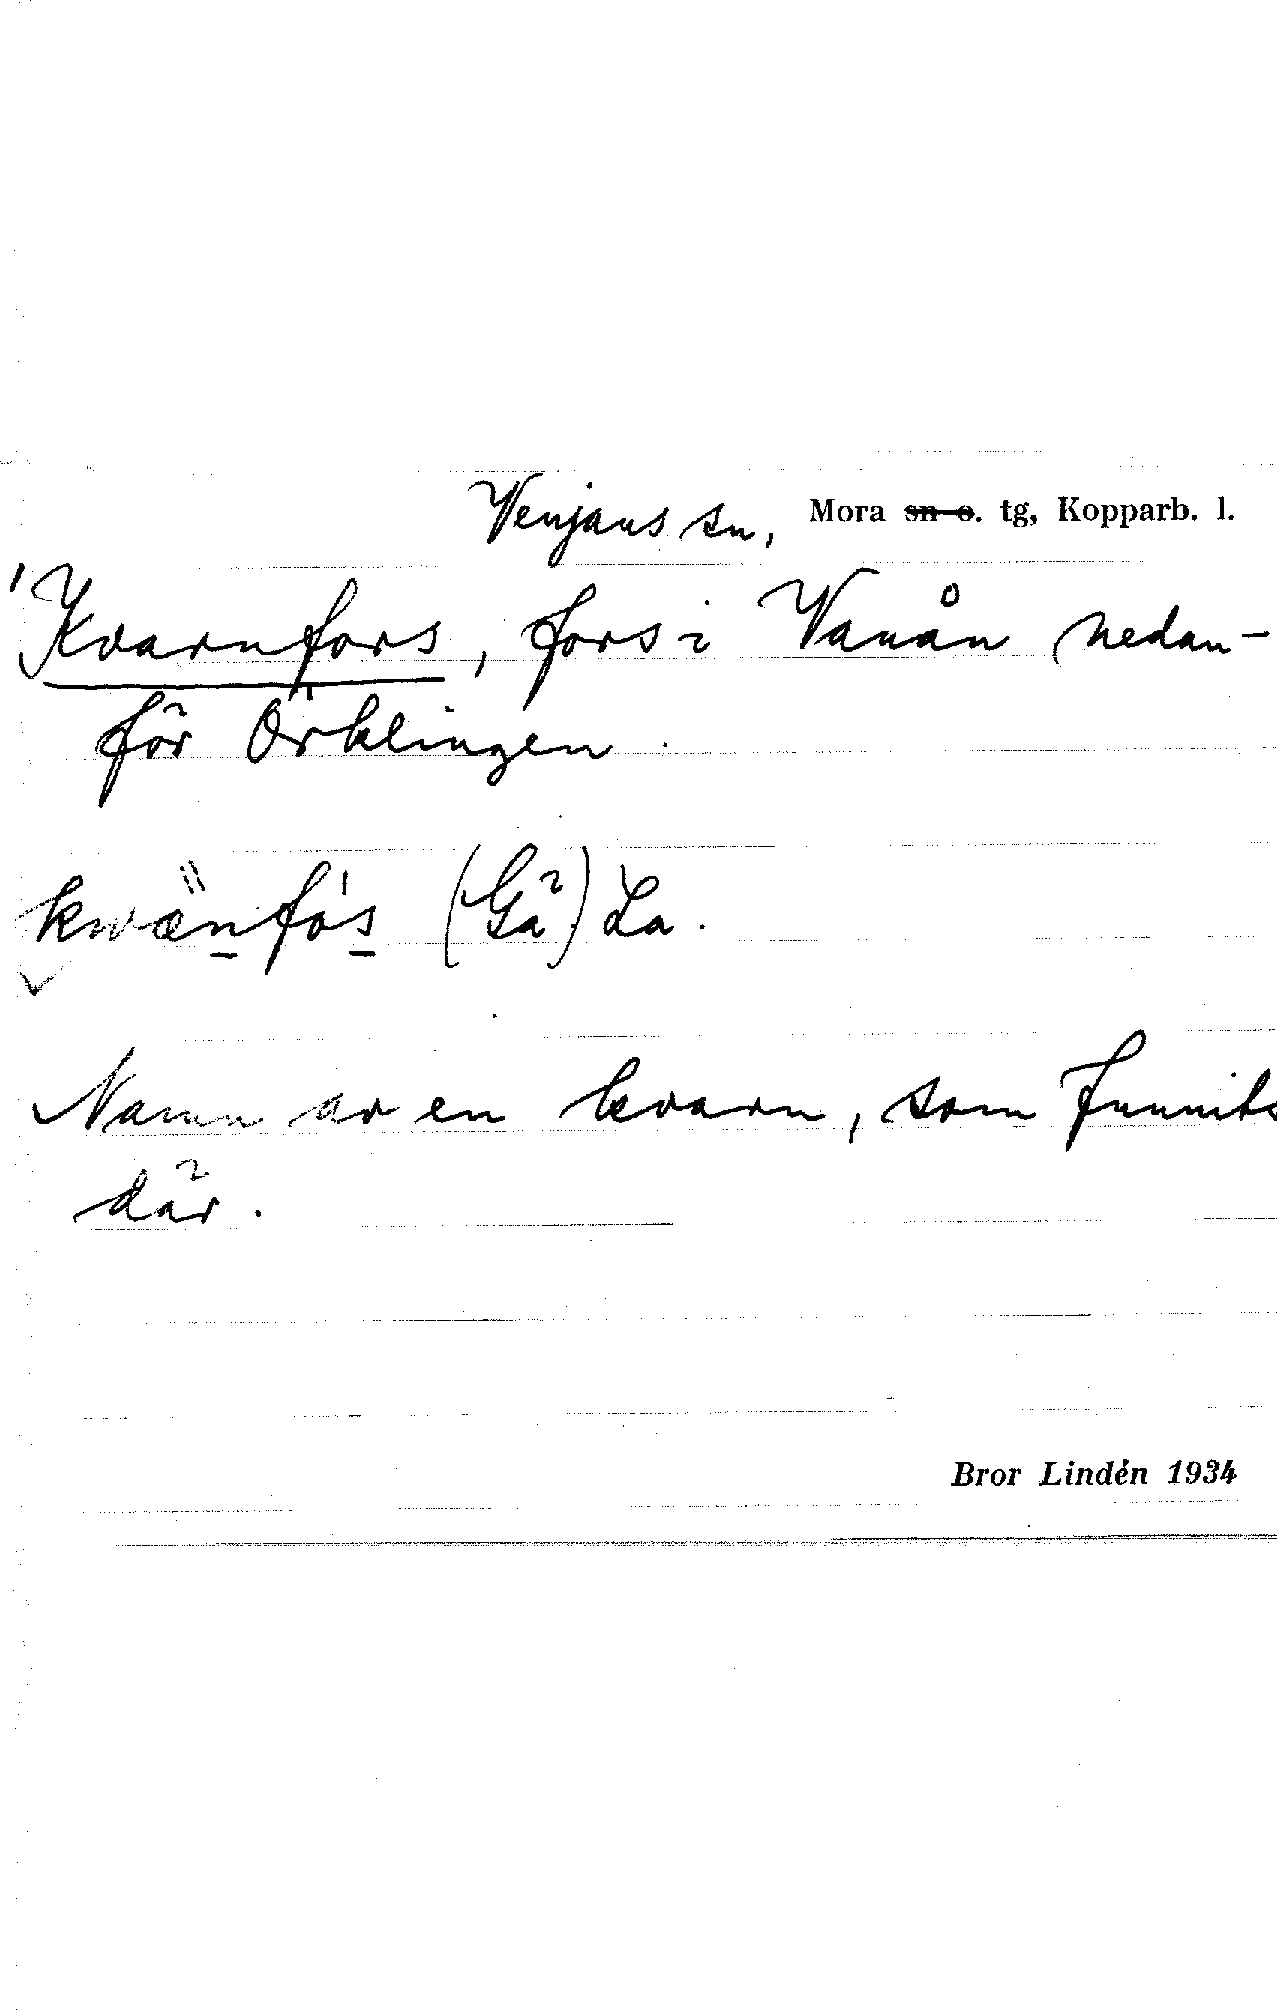 Venjans sn, Mora sn o. tg, Kopparb. l.
'Kvarnfors, fors i Vanån nedan-
för Örklingen
kwænfo's (Gä) La.
Namn av en kvarn, som funnits
där.
Bror Lindén 1934